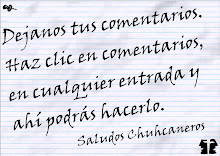 Dejanos tus comentarios.
Haz clic en comentarios,
en cualquier entrada y
ahí podrás hacerlo.
Saludos Chuhcaneros